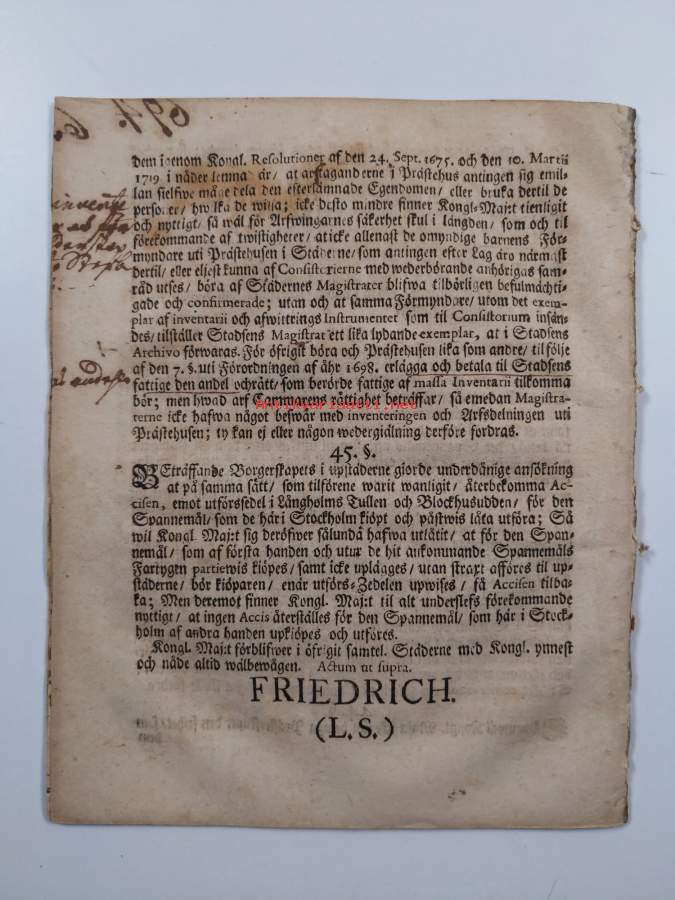 694. 6.
dem igenom Kongl. Resolutioner af den 24. Sept. 1675. och den 10. Martii
1719 i nåder lemnad är/ at arftaganderne i Prästehus antingen sig emil-
lan sielfwe måge dela den efterlämnade Egendomen/ eller bruka dertil de
personer/ hwilka de wilja; icke desto mindre finner Kongl-Maj:t tienligit
och nyttigt/ så wäl för Arfwingarnes säkerhet skul i längden/ som och til
förekommande af twistigheter/ at icke allenast de omyndige barnens För-
myndare uti Prästehusen i Städerne/ som antingen efter Lag äro närmast
dertil/ eller eljest kunna af Consistorierne med wederbörande anhörigas sam-
råd utses/ böra af Städernes Magistrater blifwa tilbörligen befulmächti-
gade och confirmerade; utan och at samma Förmyndare/ utom det exem-
plar af inventarii och afwittrings Instrumentet som til Consistorium insän-
des/ tilställer Stadsens Magistrat ett lika lydande exemplar, at i Stadsens
Archivo förwaras. För öfrigit böra och Prästehusen lika som andre/ til följe
af den 7. §. uti Förordningen af åhr 1698. erlägga och betala til Stadsens
fattige den andel och rätt/ som berörde fattige af massa Inventarii tilkomma
bör; men hwad arf Cammarens rättighet beträffar/ så emedan Magistra-
terne icke hafwa något beswär med inventeringen och Arfsdelningen uti
Prästehusen; ty kan ej eller någon wedergiälning derföre fordras.
45. §.
BEträffande Borgerskapets i upstäderne giorde underdånige ansökning
at på samma sätt/ som tilförene warit wanligit/ återbekomma Ac-
cisen, emot utförssedel i Långholms Tullen och Blockhusudden/ för den
Spannemål/ som de här i Stockholm kiöpt och påstwis låta utföra; Så
wil Kongl. Maj:t sig deröfwer sålunda hafwa utlåtit/ at för den Span-
nemål/ som af första handen och utur de hit ankommande Spannemåls
Fartygen partiewis kiöpes/ samt icke uplägges/ utan straxt afföres til up-
städerne/ bör kiöparen/ enär utförs-Zedelen upwises/ få Accisen tilba-
ka; Men deremot finner Kongl. Maj:t til alt underslefs förekommande
nyttigt/ at ingen Accis återställes för den Spannemål/ som här i Stock-
holm af andra handen upkiöpes och utföres.
Kongl. Maj:t förblifwer i öfrigit samtel. Städerne med Kongl. ynnest
och nåde altid wälbewågen. Actum ut supra.
FRIEDRICH.
(L. S.)